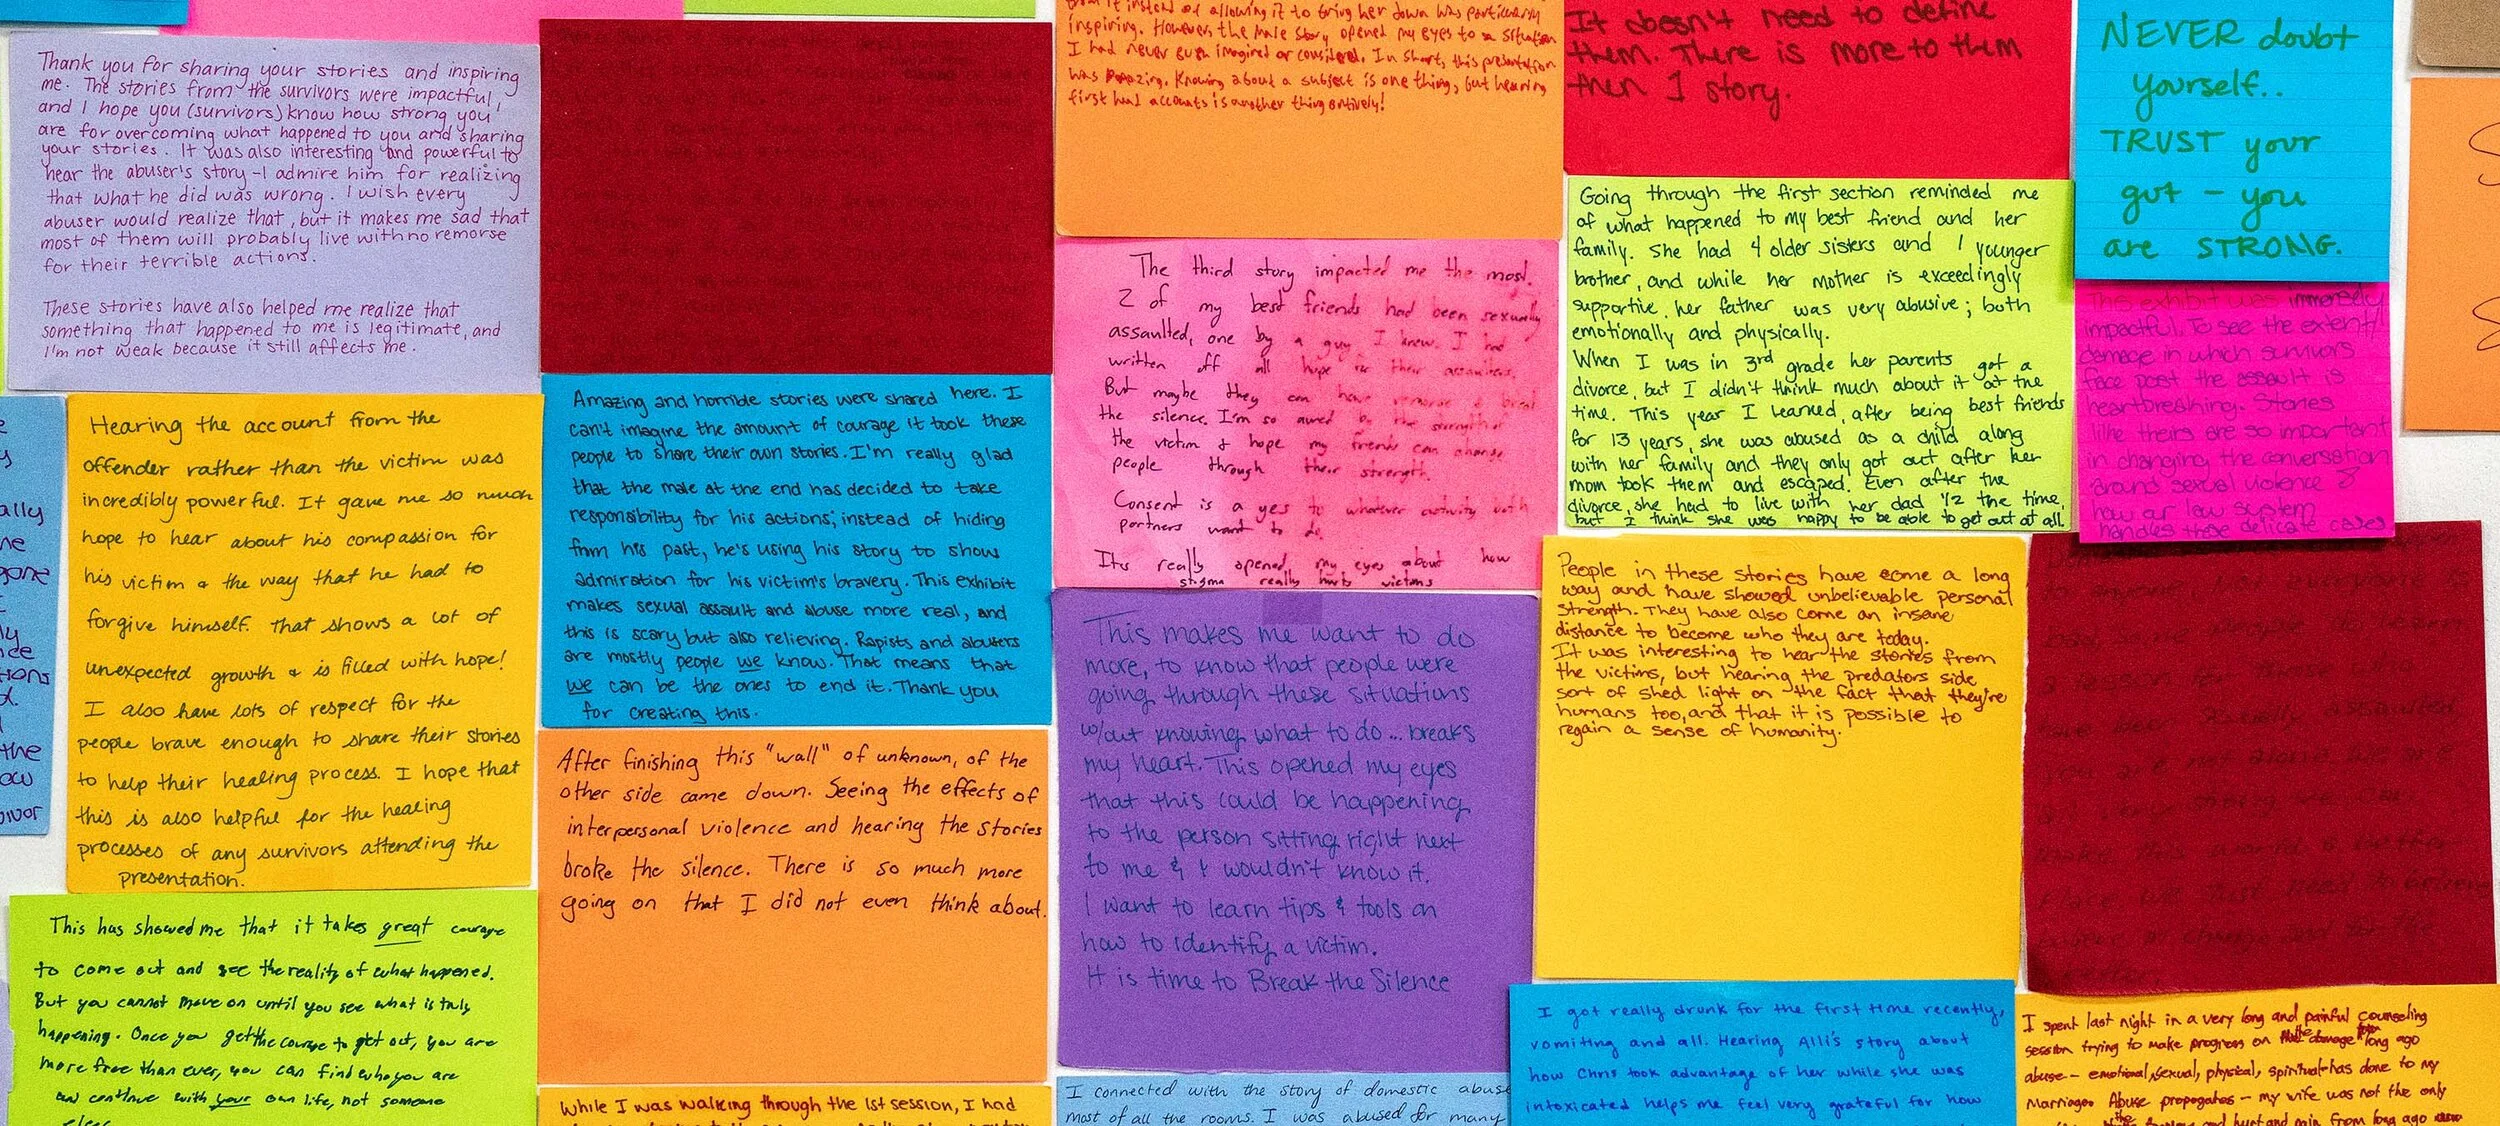 Thank you for sharing your stories and inspiring
me. The stories from the survivors were impactful,
and I hope you (survivors) know how strong you
are for overcoming what happened to you and sharing
your stories. It was also interesting and powerful to
hear the abuser's story - I admire him for realizing
that what he did was wrong. I wish every
abuser would realize that, but it makes me sad that
most of them will probably live with no remorse
for their terrible actions.
These stories have also helped me realize that
something that happened to me is legitimate, and
I'm not weak because it still affects me.
from it instead of allowing it to bring her down was particularly
inspiring. However, the male story opened my eyes to a situation
I had never even imagined or considered. In short, this presentation
was amazing. Knowing about a subject is one thing, but hearing
first hand accounts is another thing entirely!
It doesn't need to define
them. There is more to them
then 1 story.
NEVER doubt
yourself..
TRUST your
gut - you
are STRONG.
Going through the first section reminded me
of what happened to my best friend and her
family. She had 4 older sisters and 1 younger
brother, and while her mother is exceedingly
supportive, her father was very abusive; both
emotionally and physically.
When I was in 3rd grade her parents got a
divorce, but I didn't think much about it at the
time. This year I learned, after being best friends
for 13 years, she was abused as a child along
with her family and they only got out after her
mom took them and escaped. Even after the
divorce, she had to live with her dad 1/2 the time,
but I think she was happy to be able to get out at all.
The third story impacted me the most.
2 of my best friends had been sexually
assaulted, one by a guy I knew. I had
written off all hope for their assaulters.
But maybe they can have remorse & break
the silence. I'm so awed by the strength of
the victim & hope my friends can change
people through their strength.
Consent is a yes to whatever activity both
partners want to do.
Its really opened my eyes about how
stigma really hurts victims
This exhibit was immensely
impactful. To see the extent/
damage in which survivors
face post the assault is
heartbreaking. Stories
like theirs are so important
in changing the conversation
around sexual violence &
how our law system
handles these delicate cases
Hearing the account from the
offender rather than the victim was
incredibly powerful. It gave me so much
hope to hear about his compassion for
his victim & the way that he had to
forgive himself. That shows a lot of
unexpected growth & is filled with hope!
I also have lots of respect for the
people brave enough to share their stories
to help their healing process. I hope that
this is also helpful for the healing
processes of any survivors attending the
presentation.
Amazing and horrible stories were shared here. I
can't imagine the amount of courage it took these
people to share their own stories. I'm really glad
that the male at the end has decided to take
responsibility for his actions; instead of hiding
from his past, he's using his story to show
admiration for his victim's bravery. This exhibit
makes sexual assault and abuse more real, and
this is scary but also relieving. Rapists and abusers
are mostly people we know. That means that
we can be the ones to end it. Thank you
for creating this.
People in these stories have come a long
way and have showed unbelievable personal
strength. They have also come an insane
distance to become who they are today.
It was interesting to hear the stories from
the victims, but hearing the predators side
sort of shed light on the fact that they're
humans too, and that it is possible to
regain a sense of humanity.
This makes me want to do
more, to know that people were
going through these situations
w/out knowing what to do... breaks
my heart. This opened my eyes
that this could be happening
to the person sitting right next
to me & I wouldn't know it.
I want to learn tips & tools on
how to identify a victim.
It is time to Break the Silence
After finishing this "wall" of unknown, of the
other side came down. Seeing the effects of
interpersonal violence and hearing the stories
broke the silence. There is so much more
going on that I did not even think about.
you are not alone. We are
make this world a better
place we just need to believe
This has showed me that it takes great courage
to come out and see the reality of what happened.
But you cannot move on until you see what is truly
happening. Once you get the courage to get out, you are
more free than ever, you can find who you are
and continue with your own life, not someone
else's
I got really drunk for the first time recently,
vomiting and all. Hearing Alli's story about
how Chris took advantage of her while she was
intoxicated helps me feel very grateful for how
I spent last night in a very long and painful counseling
session trying to make progress on the damage from long ago
abuse - emotional, sexual, physical, spiritual - has done to my
marriage. Abuse propogates - my wife was not the only
and hurt and pain from long ago
While I was walking through the 1st session, I had
I connected with the story of domestic abuse
most of all the rooms. I was abused for many
ally
gone
the